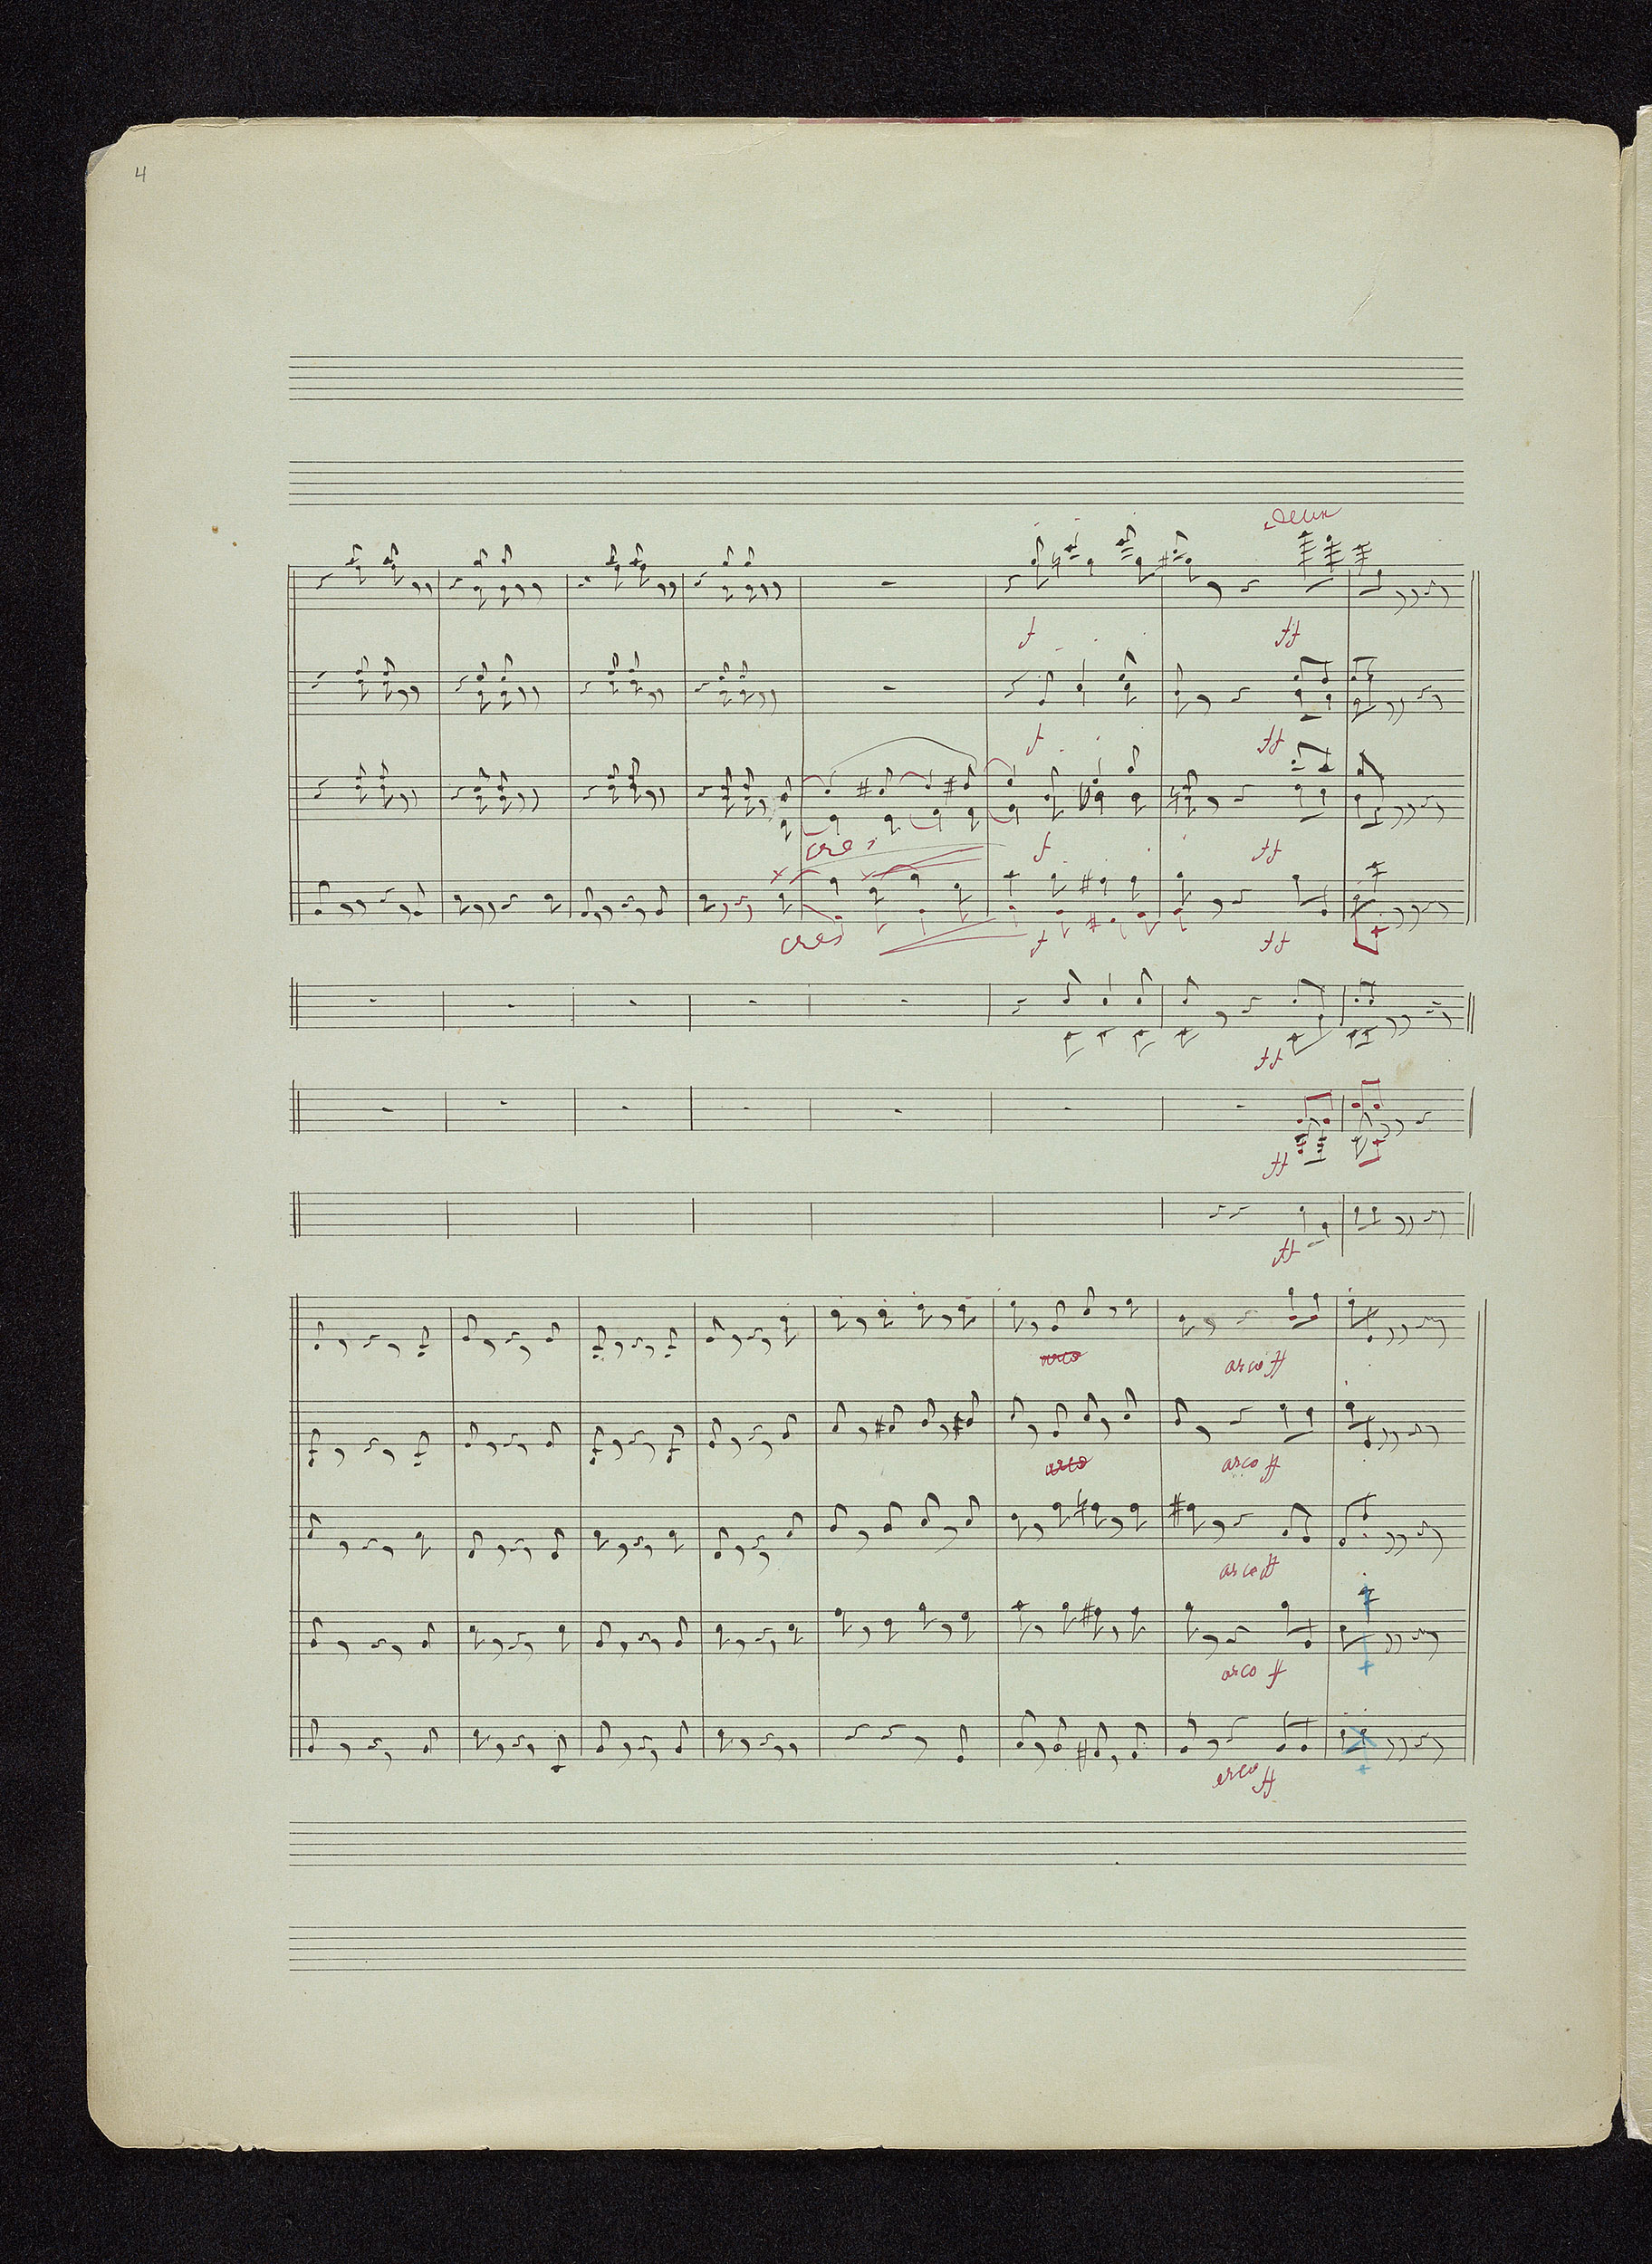 4
f
ff
f
ff
cres
f
ff
cres
f
ff
ff
ff
ff
arco
arco ff
arco
arco ff
arco ff
arco ff
arco ff